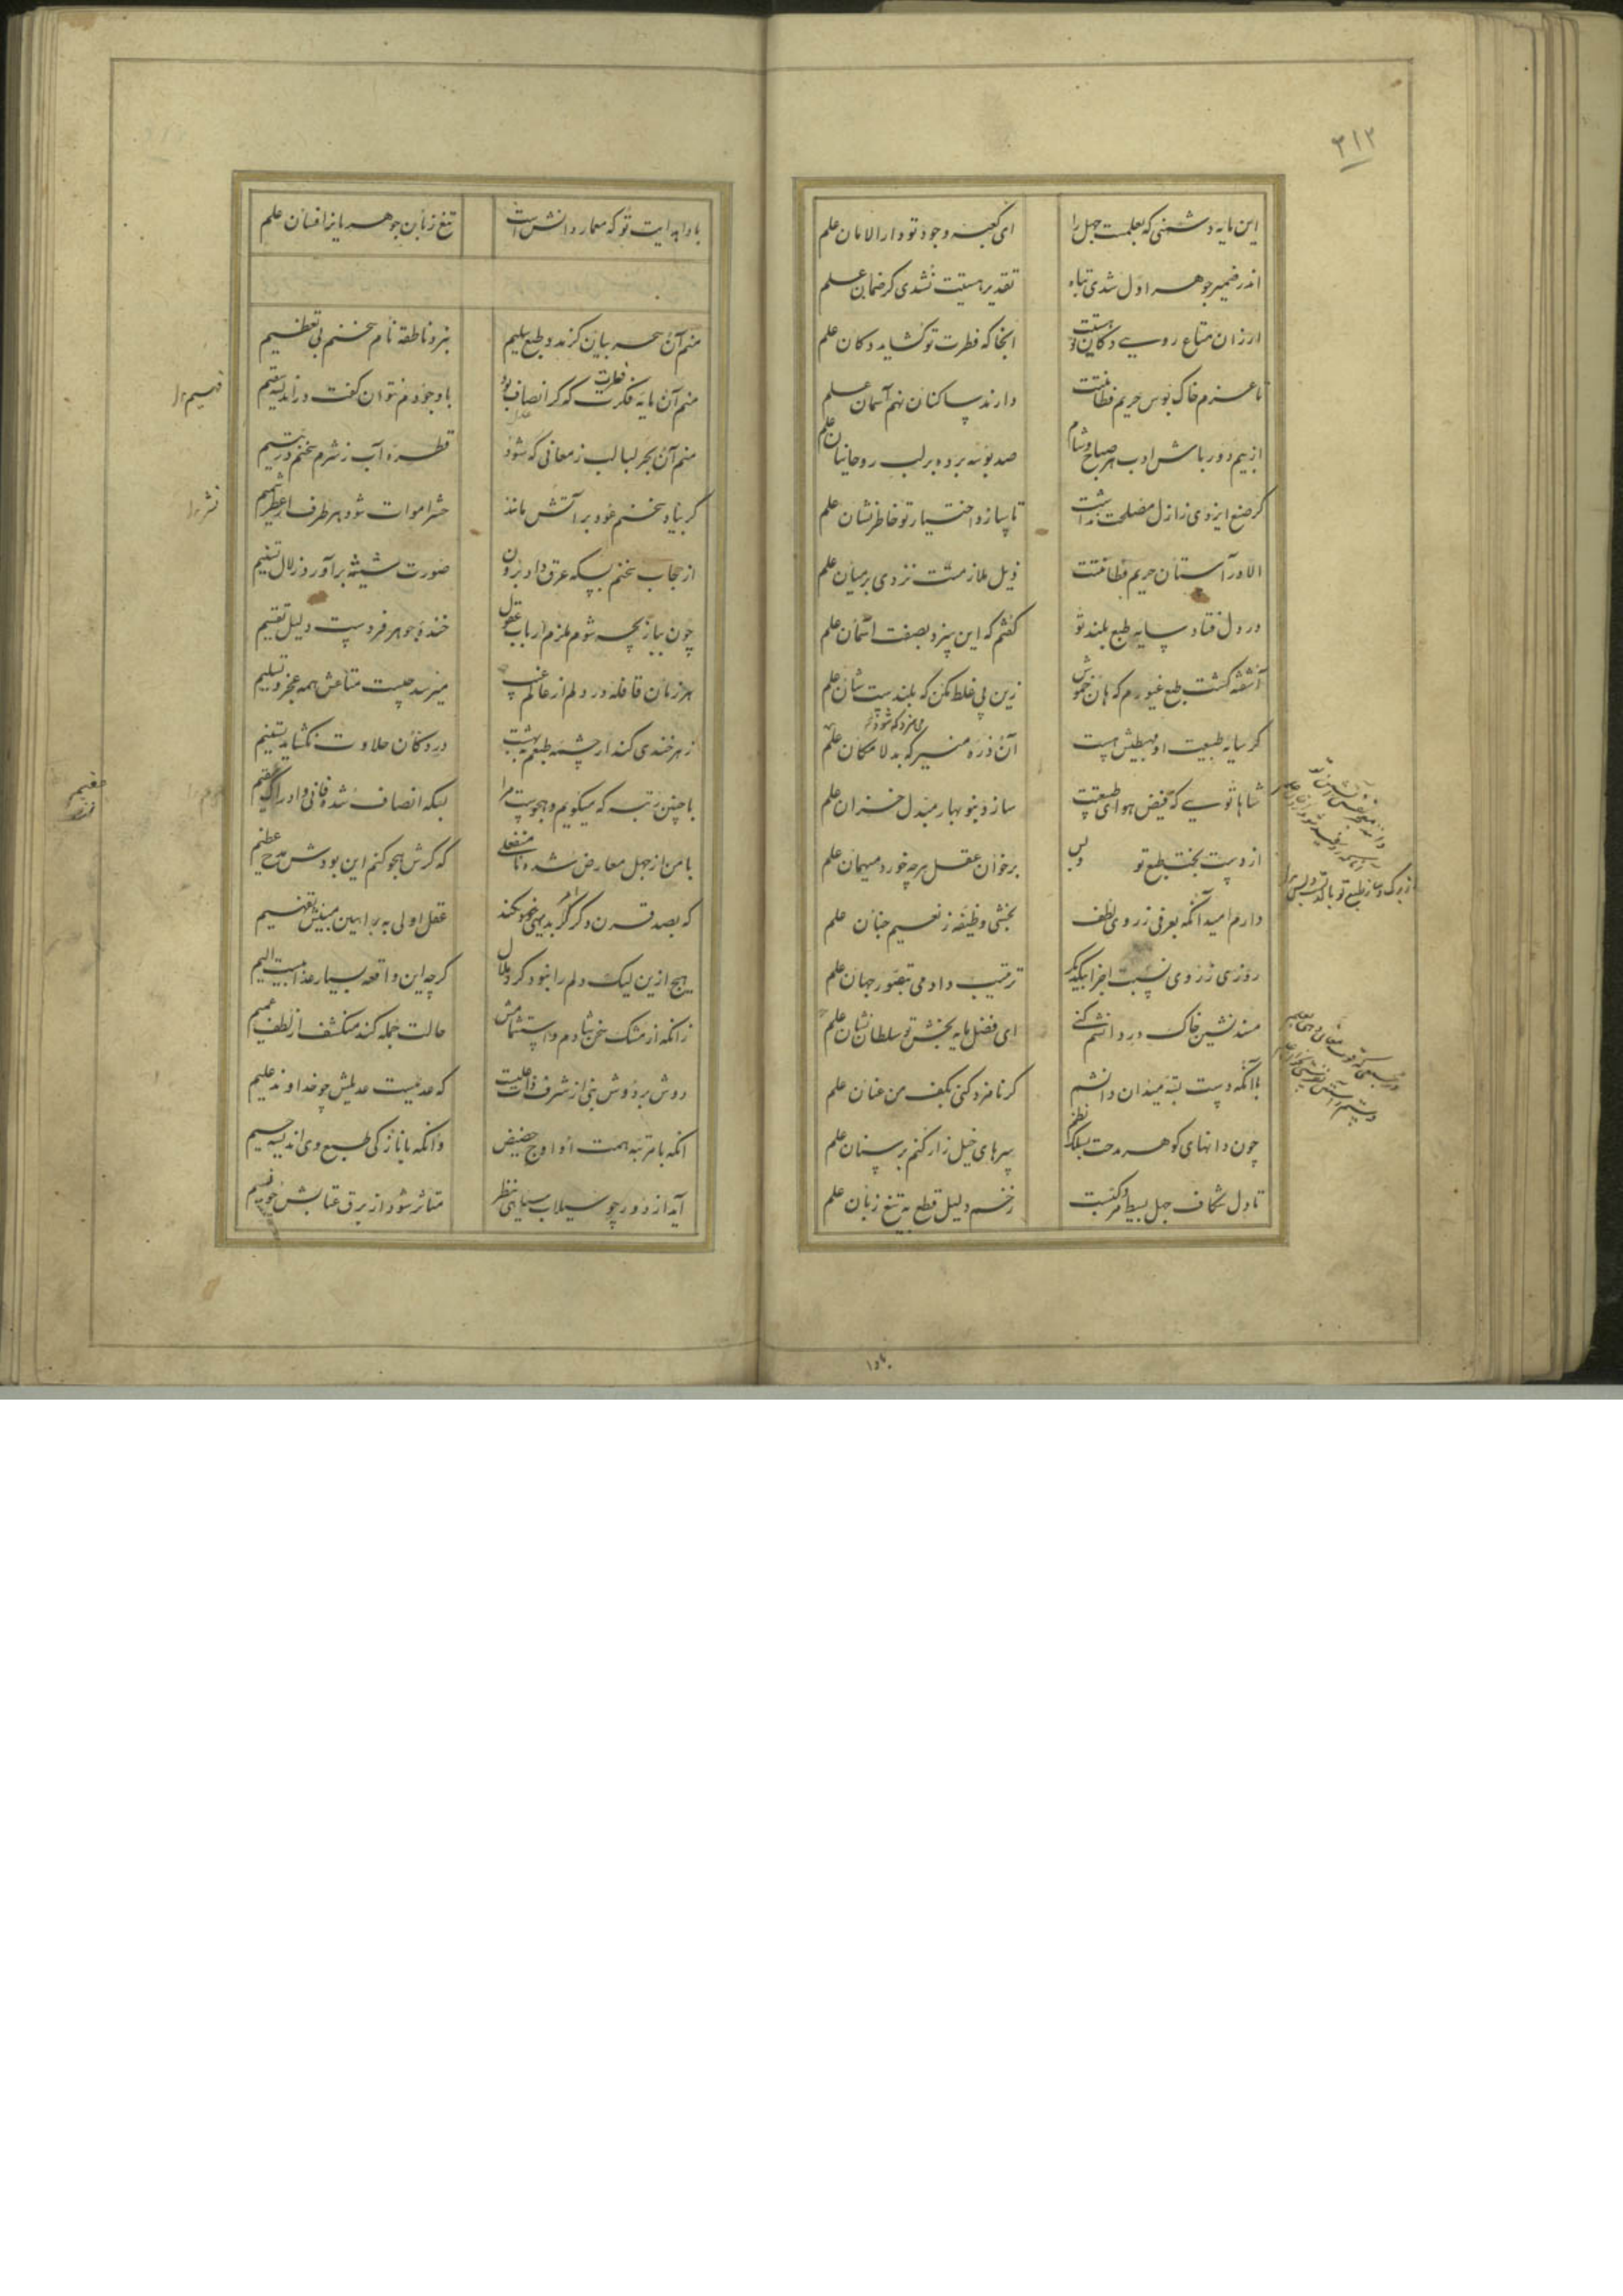 ۳۱۲
این مایه دشمنی که بعلمت جهل را ای کعبه وجود تو دار الامان علم
اندر ضمیر جوهر اول شدی تباه تقدیر هستیت نشدی گر ضمان علم
ارزان متاع روی دکان تو هست انجا که فطرت تو گشاید دکان علم
تا عزم خاک بوس حریم فطانتت دارند ساکنان نهم آسمان علم
از بیم دور باش ادب هر صباح و شام صد بوسه برده بر لب روحانیان علم
گر صنع ایزدی ز ازل مصلحت نداشت تا سازد اختیار تو خاطر نشان علم
الا در آستان حریم فطانتت ذیل ملازمتت نزدی بر میان علم
در دل فتاد سایه طبع بلند تو گفتم که این سزد بصفت آسمان علم
آشفته گشت طبع غیورم که هان خموش زین پی غلط مکن که بلندست شان علم
گر سایه طبیعت او مهبطش هست آن ذره منیر که بد لامکان علم
شاها تویی که فیض هوای طبیعتت سازد بنو بهار مبدل خزان علم
از دست بخت طبع تو وبس بر خوان عقل هرچه خورد میهمان علم
دارم امید آنکه بعرفی ز روی لطف بخشی وظیفه ز نعیم جنان علم
روزی ز روی نسبت اجزا بیکدیگر ترتیب دادمی بتصور جهان علم
مسند نشین خاک در دانشم کنی ای فضل مایه بخش تو سلطان نشان علم
با آنکه دست بسته میدان دانشم گر نامزد کنی بکف من عنان علم
چون دانهای گوهر مدحت بسلک نظم سرهای خیل زار کنم بر سنان علم
تا دل شکاف جهل بسیط و مرکبست زخم دلیل قطع به تیغ زبان علم
از برگ و ساز طبع تو
بادا هدایت تو که معمار دانش است تیغ زبان جوهریانرا فسان علم
منم آن سحر بیان کز مدد طبع سلیم نبرد ناطقه نام سخنم بی تعظیم
منم آن مایه فطرت که گر انصاف بود با وجودم نتوان گفت در اندیشه سقیم
منم آن بحر لبالب ز معانی که شود قطره آب ز شرم سخنم در یتیم
گر بیاد سخنم عود بر آتش ماند حشر اموات شود هر طرف از عطر شمیم
از حجاب سخنم بسکه عرق داد برون صورت شیشه برآورد زلال تسنیم
چون ببازیچه شوم ملزم ارباب عقول خنده جوهر فردست دلیل تقسیم
هر زمان قافله در دلم از عالم غیب میرسد چیست متاعش همه عجز و تسلیم
زهر خندی کند ار چشمه طبعم به بهشت در دکان حلاوت نگشاید تسنیم
با چنین رتبه که میگویم و هجوست مرا بسکه انصاف شده فانی و ادراک عقیم
با من از جهل معارض شده نا منفعلی که گرش هجو کنم این بودش مدح عظیم
که بصد قرن دگر گر بدیهی نکند عقل اولی به براهین مبینش تفهیم
هیچ ازین لیک دلم را نبود گرد ملال گرچه این واقعه بسیار عذابیست الیم
زانکه از مشک سخن شادم و استشمامش حالت جمله کند منکشف از لطف عمیم
دوش بر دوش نبی از شرف ذاتیت که عدمیست عدیلش چو خداوند علیم
انکه با مرتبه همت او اوج حضیض وانکه با نازکی طبع وی اندیشه جسیم
آید از دور چو سیلاب سیاهی بنظر متاثر شود از برق عتابش چو نسیم